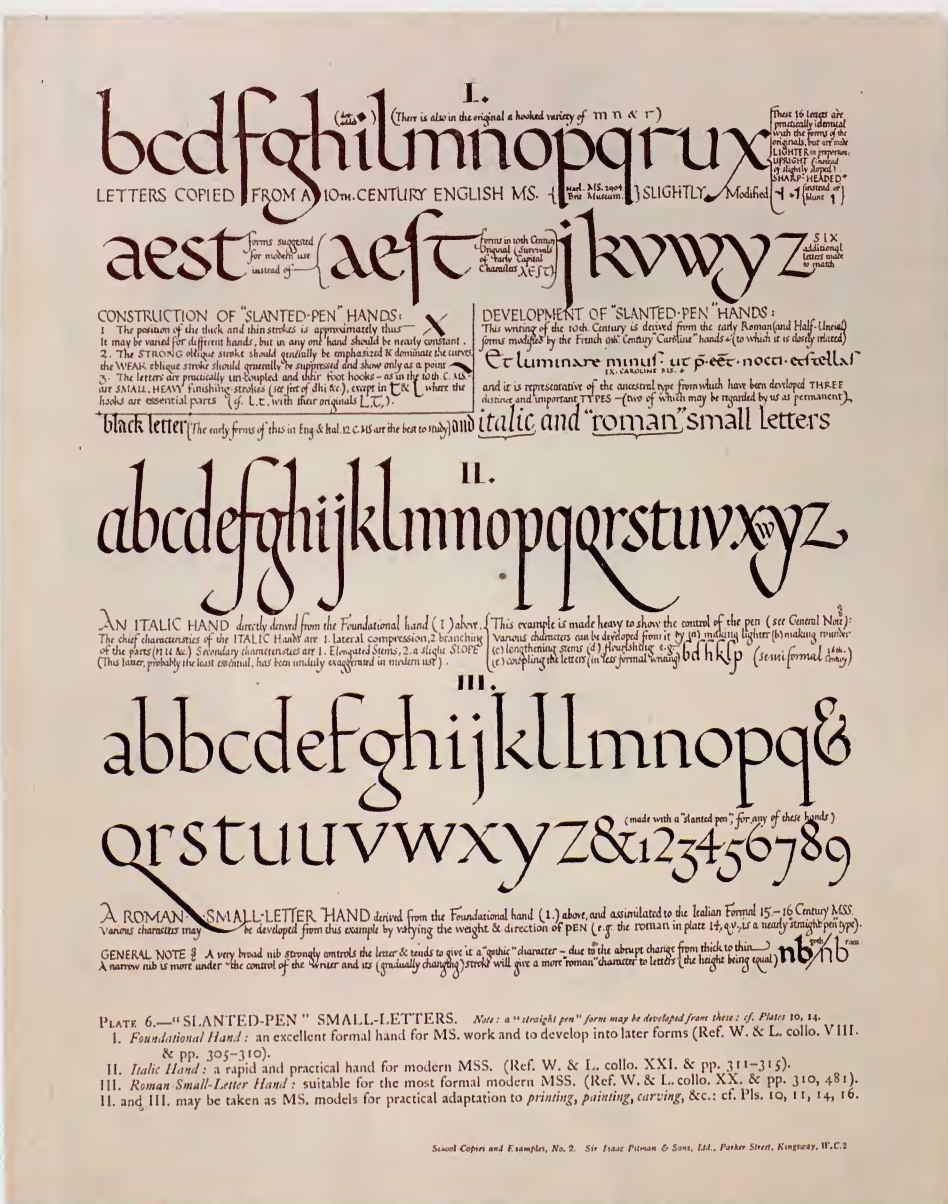 I.
(There is also in the original a hooked variety of m n & r)
bcdfghilmnopqrux
These 16 letters are
practically identical
with the forms of the
originals, but are made
LIGHTER in proportion:
UPRIGHT (instead
of slightly sloped).
SHARP-HEADED
(instead of
blunt
LETTERS COPIED FROM A 10TH. CENTURY ENGLISH MS. {Harl. MS. 2904 Brit. Museum.} SLIGHTLY Modified
aest
forms suggested
for modern use
instead of—
aeſt
forms in 10th Century
Original (Survivals
of early Capital
Characters
jkvwyz
SIX
additional
letters made
to match
CONSTRUCTION OF "SLANTED-PEN" HANDS:
1 The position of the thick and thin strokes is approximately thus—
It may be varied for different hands, but in any one hand should be nearly constant.
2. The STRONG oblique stroke should generally be emphasized & dominate the curves,
the WEAK oblique stroke should generally be suppressed and show only as a point
3. The letters are practically un-coupled and their foot hooks — as in the 10th. C. MS.
are SMALL, HEAVY finishing-strokes (see feet of dhi &c.), except in t & l where the
hooks are essential parts (cf. L.t, with their originals L,T,).
DEVELOPMENT OF "SLANTED-PEN" HANDS:
This writing of the 10th Century is derived from the early Roman (and Half-Uncial)
forms modified by the French 9th. Century "Caroline" hands (to which it is closely related)
Et luminare minuſ. ut p̄-eēt. nocti. etſtellaſ
IX. CAROLINE MS.
and it is representative of the ancestral type from which have been developed THREE
distinct and important TYPES — (two of which may be regarded by us as permanent),
black letter (The early forms of this in Eng & Ital. 12 C. MS are the best to study) and italic and "roman" small letters
II.
abcdefghijklmnopqQrstuvxwyz
AN ITALIC HAND directly derived from the Foundational hand (I) above.
The chief characteristics of the ITALIC Hands are 1. lateral compression, 2. branching
of the parts (n u &c.) Secondary characteristics are 1. Elongated Stems, 2. a slight SLOPE
(This latter, probably the least essential, has been unduly exaggerated in modern use).
This example is made heavy to show the control of the pen (see General Note):
Various characters can be developed from it by (a) making lighter (b) making rounder
(c) lengthening stems (d) flourishing e.g.
(e) coupling the letters (in less formal writing) bdhklp (semi formal 16th. Century)
III.
abbcdefghijkllmnopq&
(made with a "slanted pen", for any of these hands)
Qrstuuvwxyz&123456789
A ROMAN SMALL-LETTER HAND derived from the Foundational hand (I.) above, and assimilated to the Italian Formal 15.–16 Century MSS.
Various characters may be developed from this example by varying the weight & direction of PEN (e.g. the roman in plate 14, q.v., is a nearly "straight pen" type).
GENERAL NOTE A very broad nib strongly controls the letter & tends to give it a "gothic" character — due to the abrupt change from thick to thin
A narrow nib is more under the control of the writer and its (gradually changing) stroke will give a more "roman" character to letters (the height being equal) nb/nb
PLATE 6.—"SLANTED-PEN" SMALL-LETTERS. Note: a "straight pen" form may be developed from these: cf. Plates 10, 14.
I. Foundational Hand: an excellent formal hand for MS. work and to develop into later forms (Ref. W. & L. collo. VIII.
& pp. 305–310).
II. Italic Hand: a rapid and practical hand for modern MSS. (Ref. W. & L. collo. XXI. & pp. 311–315).
III. Roman Small-Letter Hand: suitable for the most formal modern MSS. (Ref. W. & L. collo. XX. & pp. 310, 481).
II. and III. may be taken as MS. models for practical adaptation to printing, painting, carving, &c.: cf. Pls. 10, 11, 14, 16.
School Copies and Examples, No. 2. Sir Isaac Pitman & Sons, Ltd., Parker Street, Kingsway, W.C.2